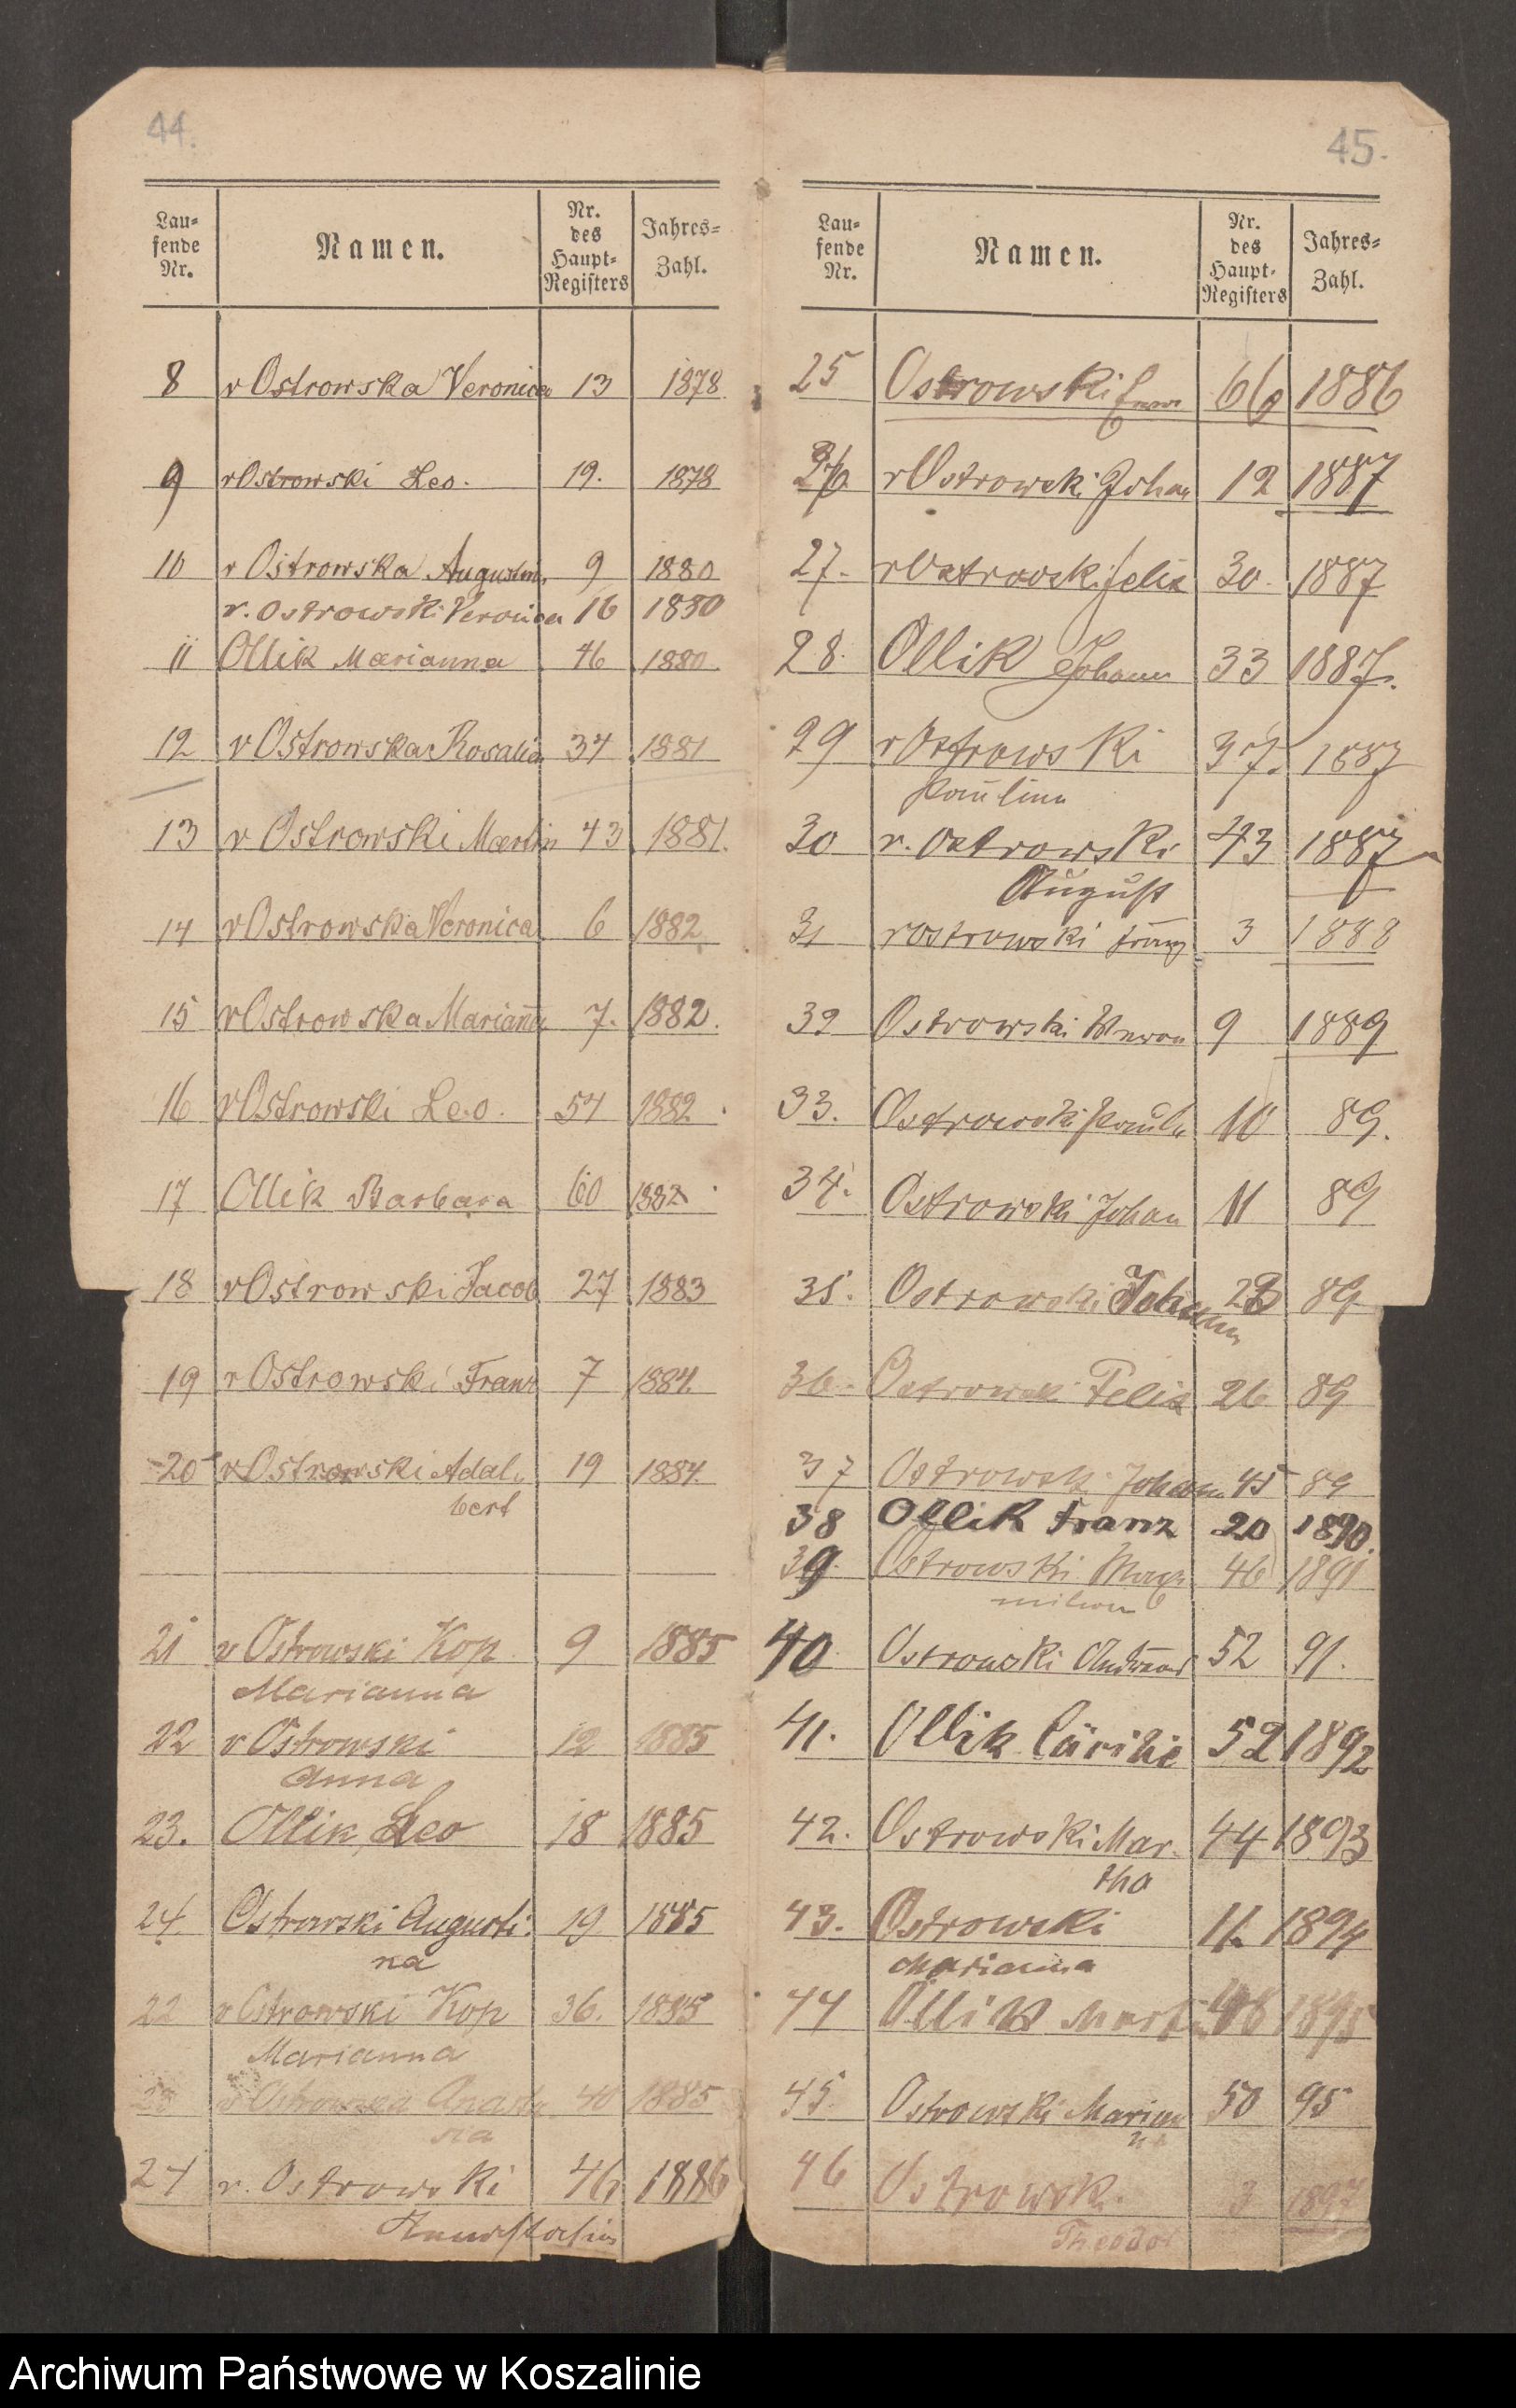 44.
Lau=
fende
Nr.
Namen.
Nr.
des
Haupt=
Registers
Jahres=
Zahl.
8 v Ostrowska Veronica 13 1878
9 v Ostrowski Leo. 19. 1878
10 v Ostrowska Augustin 9 1880
v. Ostrowski Veronica 16 1880
11 Ollik Marianna 46 1880
12 v Ostrowska Rosalia 34 1881
13 v Ostrowski Martin 43 1881.
14 v Ostrowska Veronica 6 1882
15 v Ostrowska Marianna 7. 1882.
16 v Ostrowski Leo. 54 1882
17 Ollik Barbara 60 1882
18 v Ostrowski Jacob 27 1883
19 v Ostrowski Franz 7 1884.
20 v Ostrowski Adal
bert 19 1884.
21 v Ostrowski Kop 9 1885
Marianna
22 v Ostrowski 12 1885
Anna
23. Ollik Leo 18 1885
24. Ostrowski Augusti 19 1885
na
22 v Ostrowski Kop 36. 1885
Marianna
23 v Ostrowska Anasta 40 1885
sia
24 v. Ostrowski 46 1886
45.
Lau=
fende
Nr.
Namen.
Nr.
des
Haupt=
Registers
Jahres=
Zahl.
25 Ostrowski 66 1886
26 v Ostrowski Johan 12 1887
27. v Ostrowski Felix 30. 1887
28. Ollik Johann 33 1887.
29 v Ostrowski 37. 1887
Paulina
30 v. Ostrowski 43 1887
August
31 v Ostrowski Franz 3 1888
32 Ostrowski 9 1889
33. Ostrowski Paul 10 89.
34. Ostrowski Johan 11 89
35. Ostrowski Johann 89
36. Ostrowski Felix 26 89
37 Ostrowski Johann 45 89
38 Ollik Franz 20 1890.
39. Ostrowski Maxi 46 1891
milian
40 Ostrowski 52 91.
41. Ollik Cäcilie 52 1892
42. Ostrowski Mar- 44 1893
tha
43. Ostrowski 11. 1894
Marianna
44 Ollik Martin 46 1895
45. Ostrowski Marian 50 95
na
46 Ostrowski. 3 1897
Theodor
Archiwum Państwowe w Koszalinie